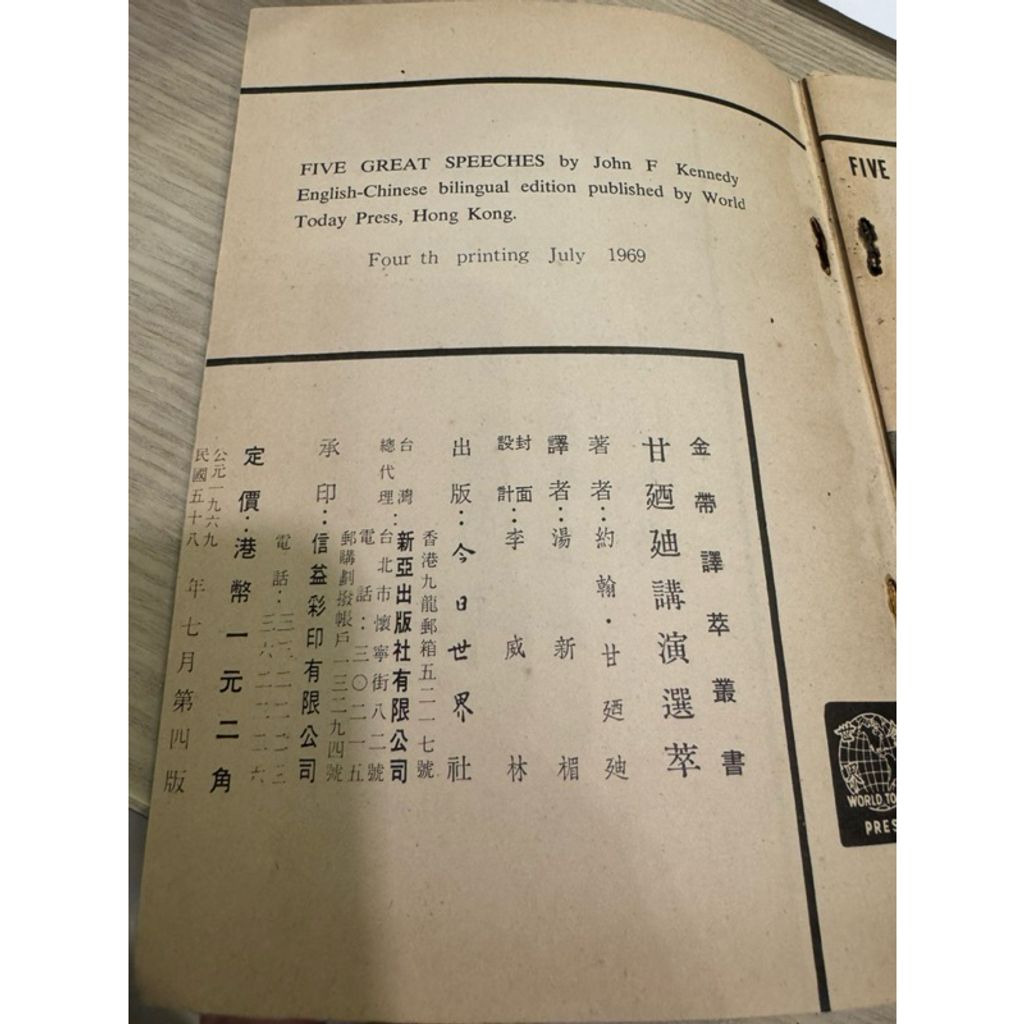 FIVE GREAT SPEECHES by John F Kennedy
English-Chinese bilingual edition published by World
Today Press, Hong Kong.
Four th printing July 1969
金帶譯萃叢書
甘廼廸講演選萃
著者：約翰・甘廼廸
譯者：湯新楣
封面設計：李威林
出版：今日世界社
香港九龍郵箱五二一七號
台灣總代理：新亞出版社有限公司
台北市懷寧街八二號
電話：三〇二一五
郵購劃撥帳戶一三二九四號
承印：信益彩印有限公司
電話：
定價：港幣一元二角
公元一九六九
民國五十八
年七月第四版
FIVE
世
界
WORLD TO
PRES